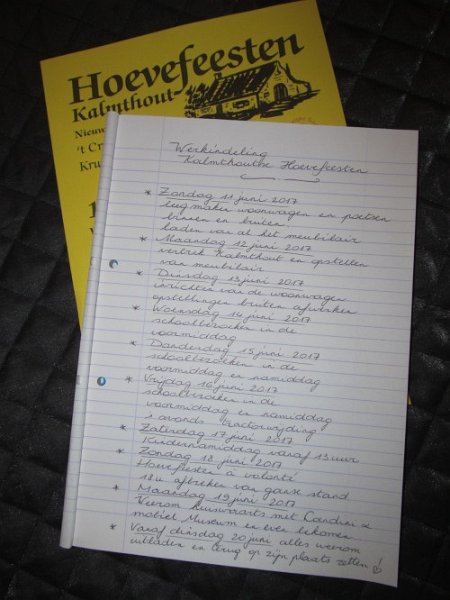 Hoevefeesten
Kalmthout
Nieuw
't Cr
Kru
1
Werkindeling
Kalmthoutse Hoevefeesten
* Zondag 11 juni 2017
leegmaken woonwagen en poetsen
binnen en buiten!
laden van al het meubilair
* Maandag 12 juni 2017
vertrek Kalmthout en opstellen
van meubilair
* Dinsdag 13 juni 2017
inrichten van de woonwagen
opstellingen buiten afwerken
* Woensdag 14 juni 2017
schoolbezoeken in de
voormiddag
* Donderdag 15 juni 2017
schoolbezoeken in de
voormiddag en namiddag
* Vrijdag 16 juni 2017
schoolbezoeken in de
voormiddag en namiddag
's avonds tractorwijding
* Zaterdag 17 juni 2017
Kindernamiddag vanaf 13 uur
* Zondag 18 juni 2017
Hoevefeesten à volonté
18u afbreken van ganse stand
* Maandag 19 juni 2017
Weerom huiswaarts met
mobiel Museum en even bekomen
* Vanaf dinsdag 20 juni alles weerom
uitladen en terug op zijn plaats zetten!